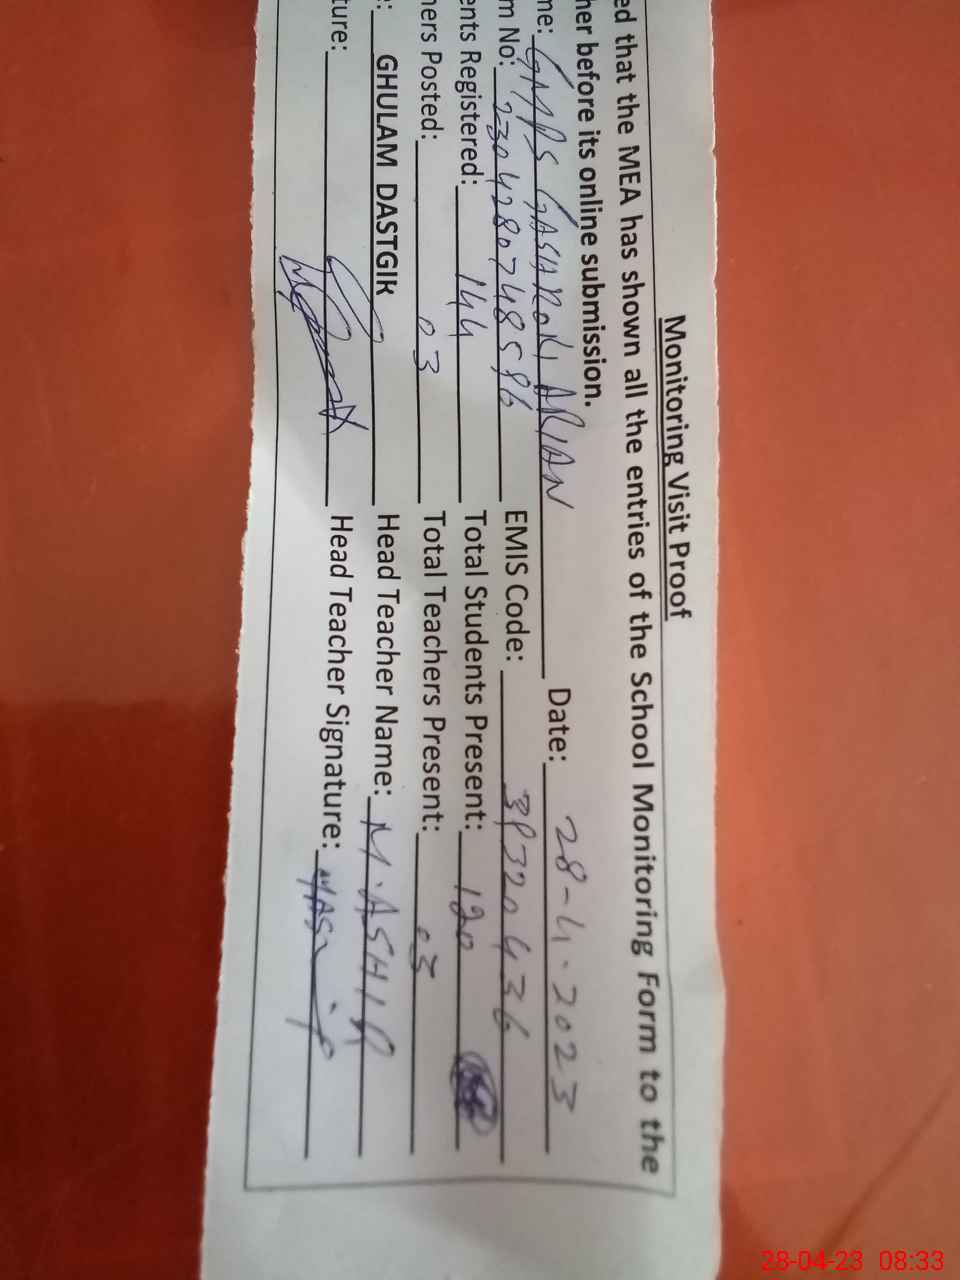 Monitoring Visit Proof
ed that the MEA has shown all the entries of the School Monitoring Form to the
her before its online submission.
me: GMPS GASHKORI ARIAN Date: 28-4-2023
m No: EMIS Code:
ents Registered: 144 Total Students Present: 120
hers Posted: 03 Total Teachers Present: 03
: GHULAM DASTGIR Head Teacher Name: M.ASHIR
ture: Head Teacher Signature:
28-04-23 08:33